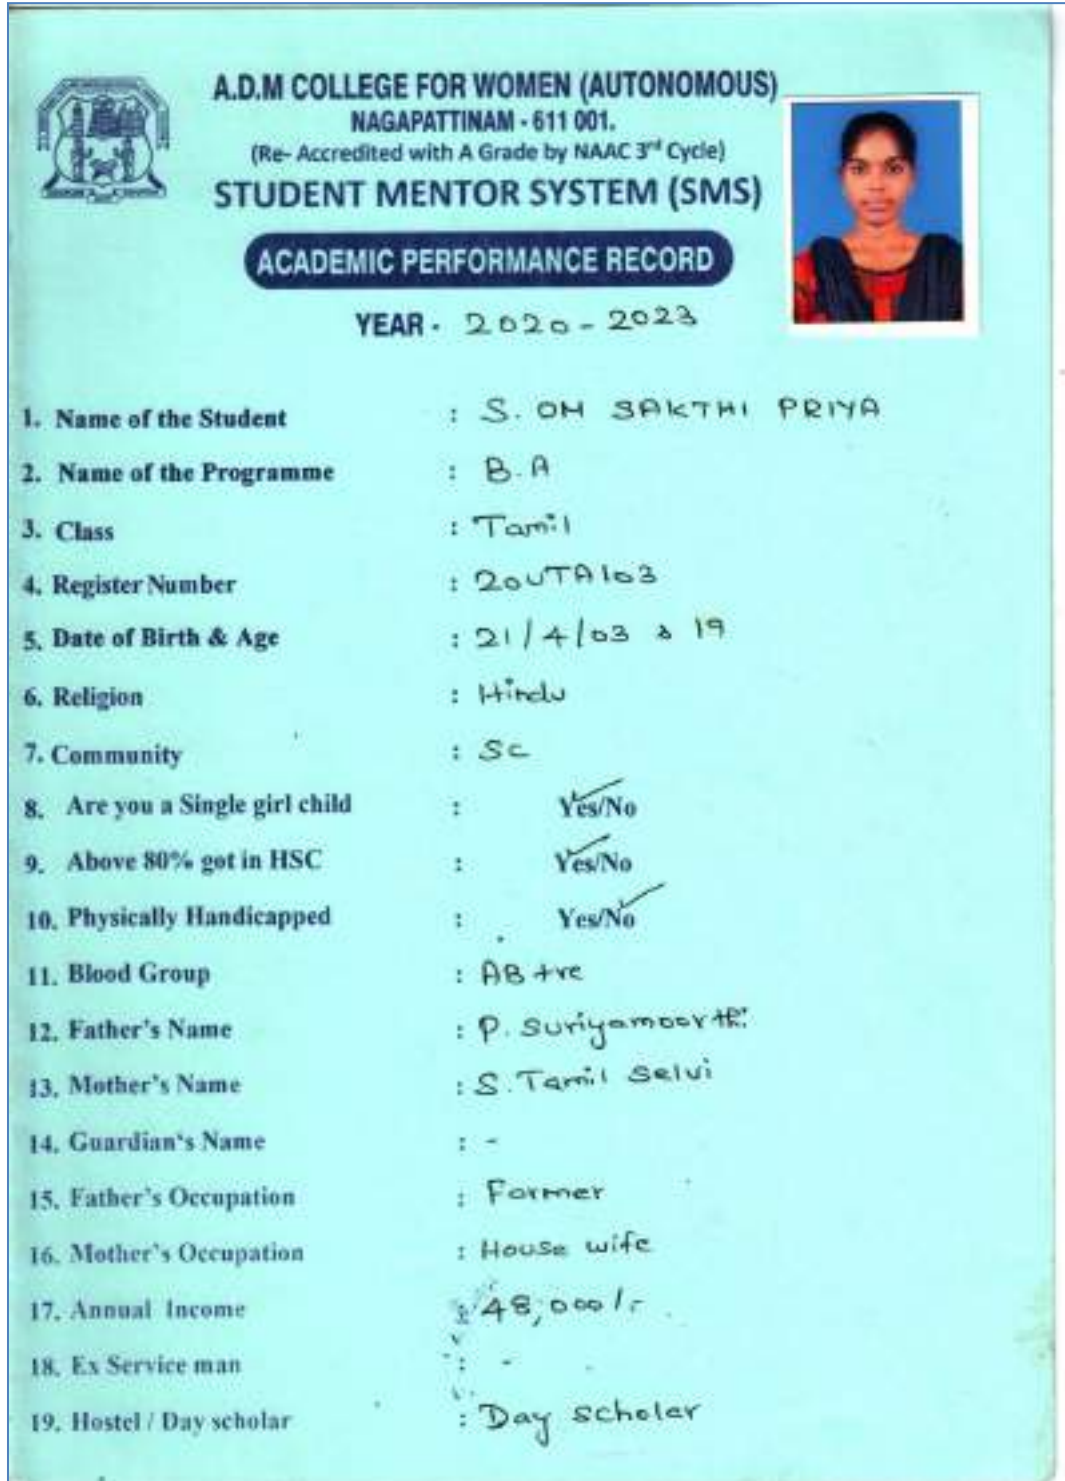 A.D.M COLLEGE FOR WOMEN (AUTONOMOUS)
NAGAPATTINAM - 611 001.
(Re- Accredited with A Grade by NAAC 3rd Cycle)
STUDENT MENTOR SYSTEM (SMS)
ACADEMIC PERFORMANCE RECORD
YEAR - 2020-2023
1. Name of the Student : S. OM SAKTHI PRIYA
2. Name of the Programme : B.A
3. Class : Tamil
4. Register Number : 20UTA103
5. Date of Birth & Age : 21/4/03 & 19
6. Religion : Hindu
7. Community : SC
8. Are you a Single girl child : Yes/No
9. Above 80% got in HSC : Yes/No
10. Physically Handicapped : Yes/No
11. Blood Group : AB +ve
12. Father's Name : P. Suriyamoorthi
13. Mother's Name : S. Tamil Selvi
14. Guardian's Name : -
15. Father's Occupation : Former
16. Mother's Occupation : House wife
17. Annual Income : 48,000/-
18. Ex Service man : -
19. Hostel / Day scholar : Day scholar